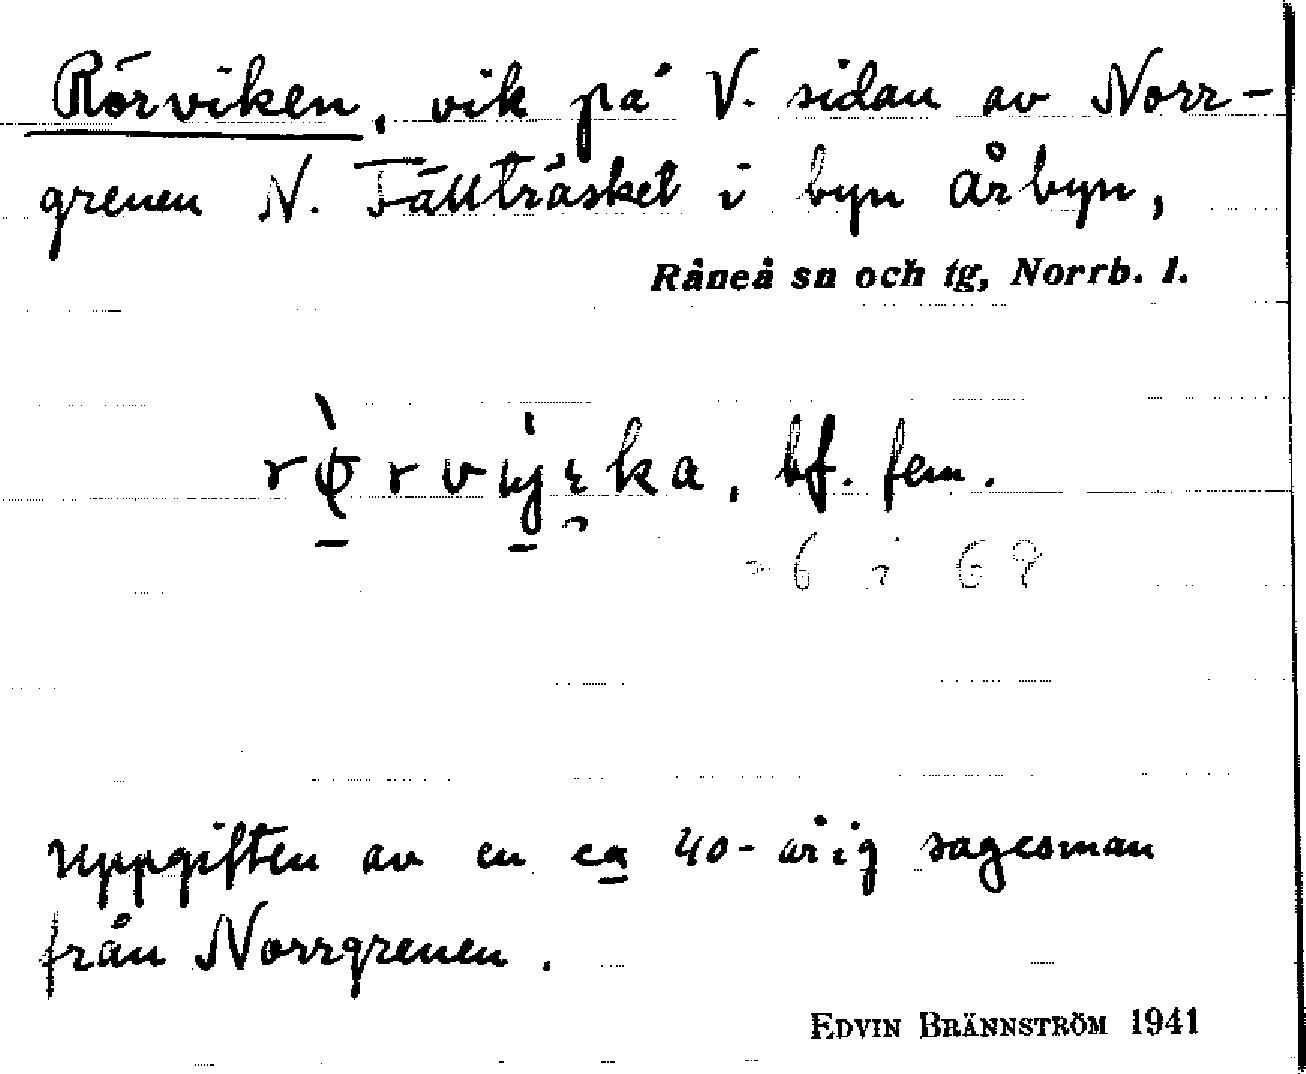 Rörviken, vik på V. sidan av Norr-
grenen N. Fällträsket i byn Årbyn,
Råneå sn och tg, Norrb. l.
bf. fem.
Uppgiften av en ca 40-årig sagesman
från Norrgrenen.
EDVIN BRÄNNSTRÖM 1941